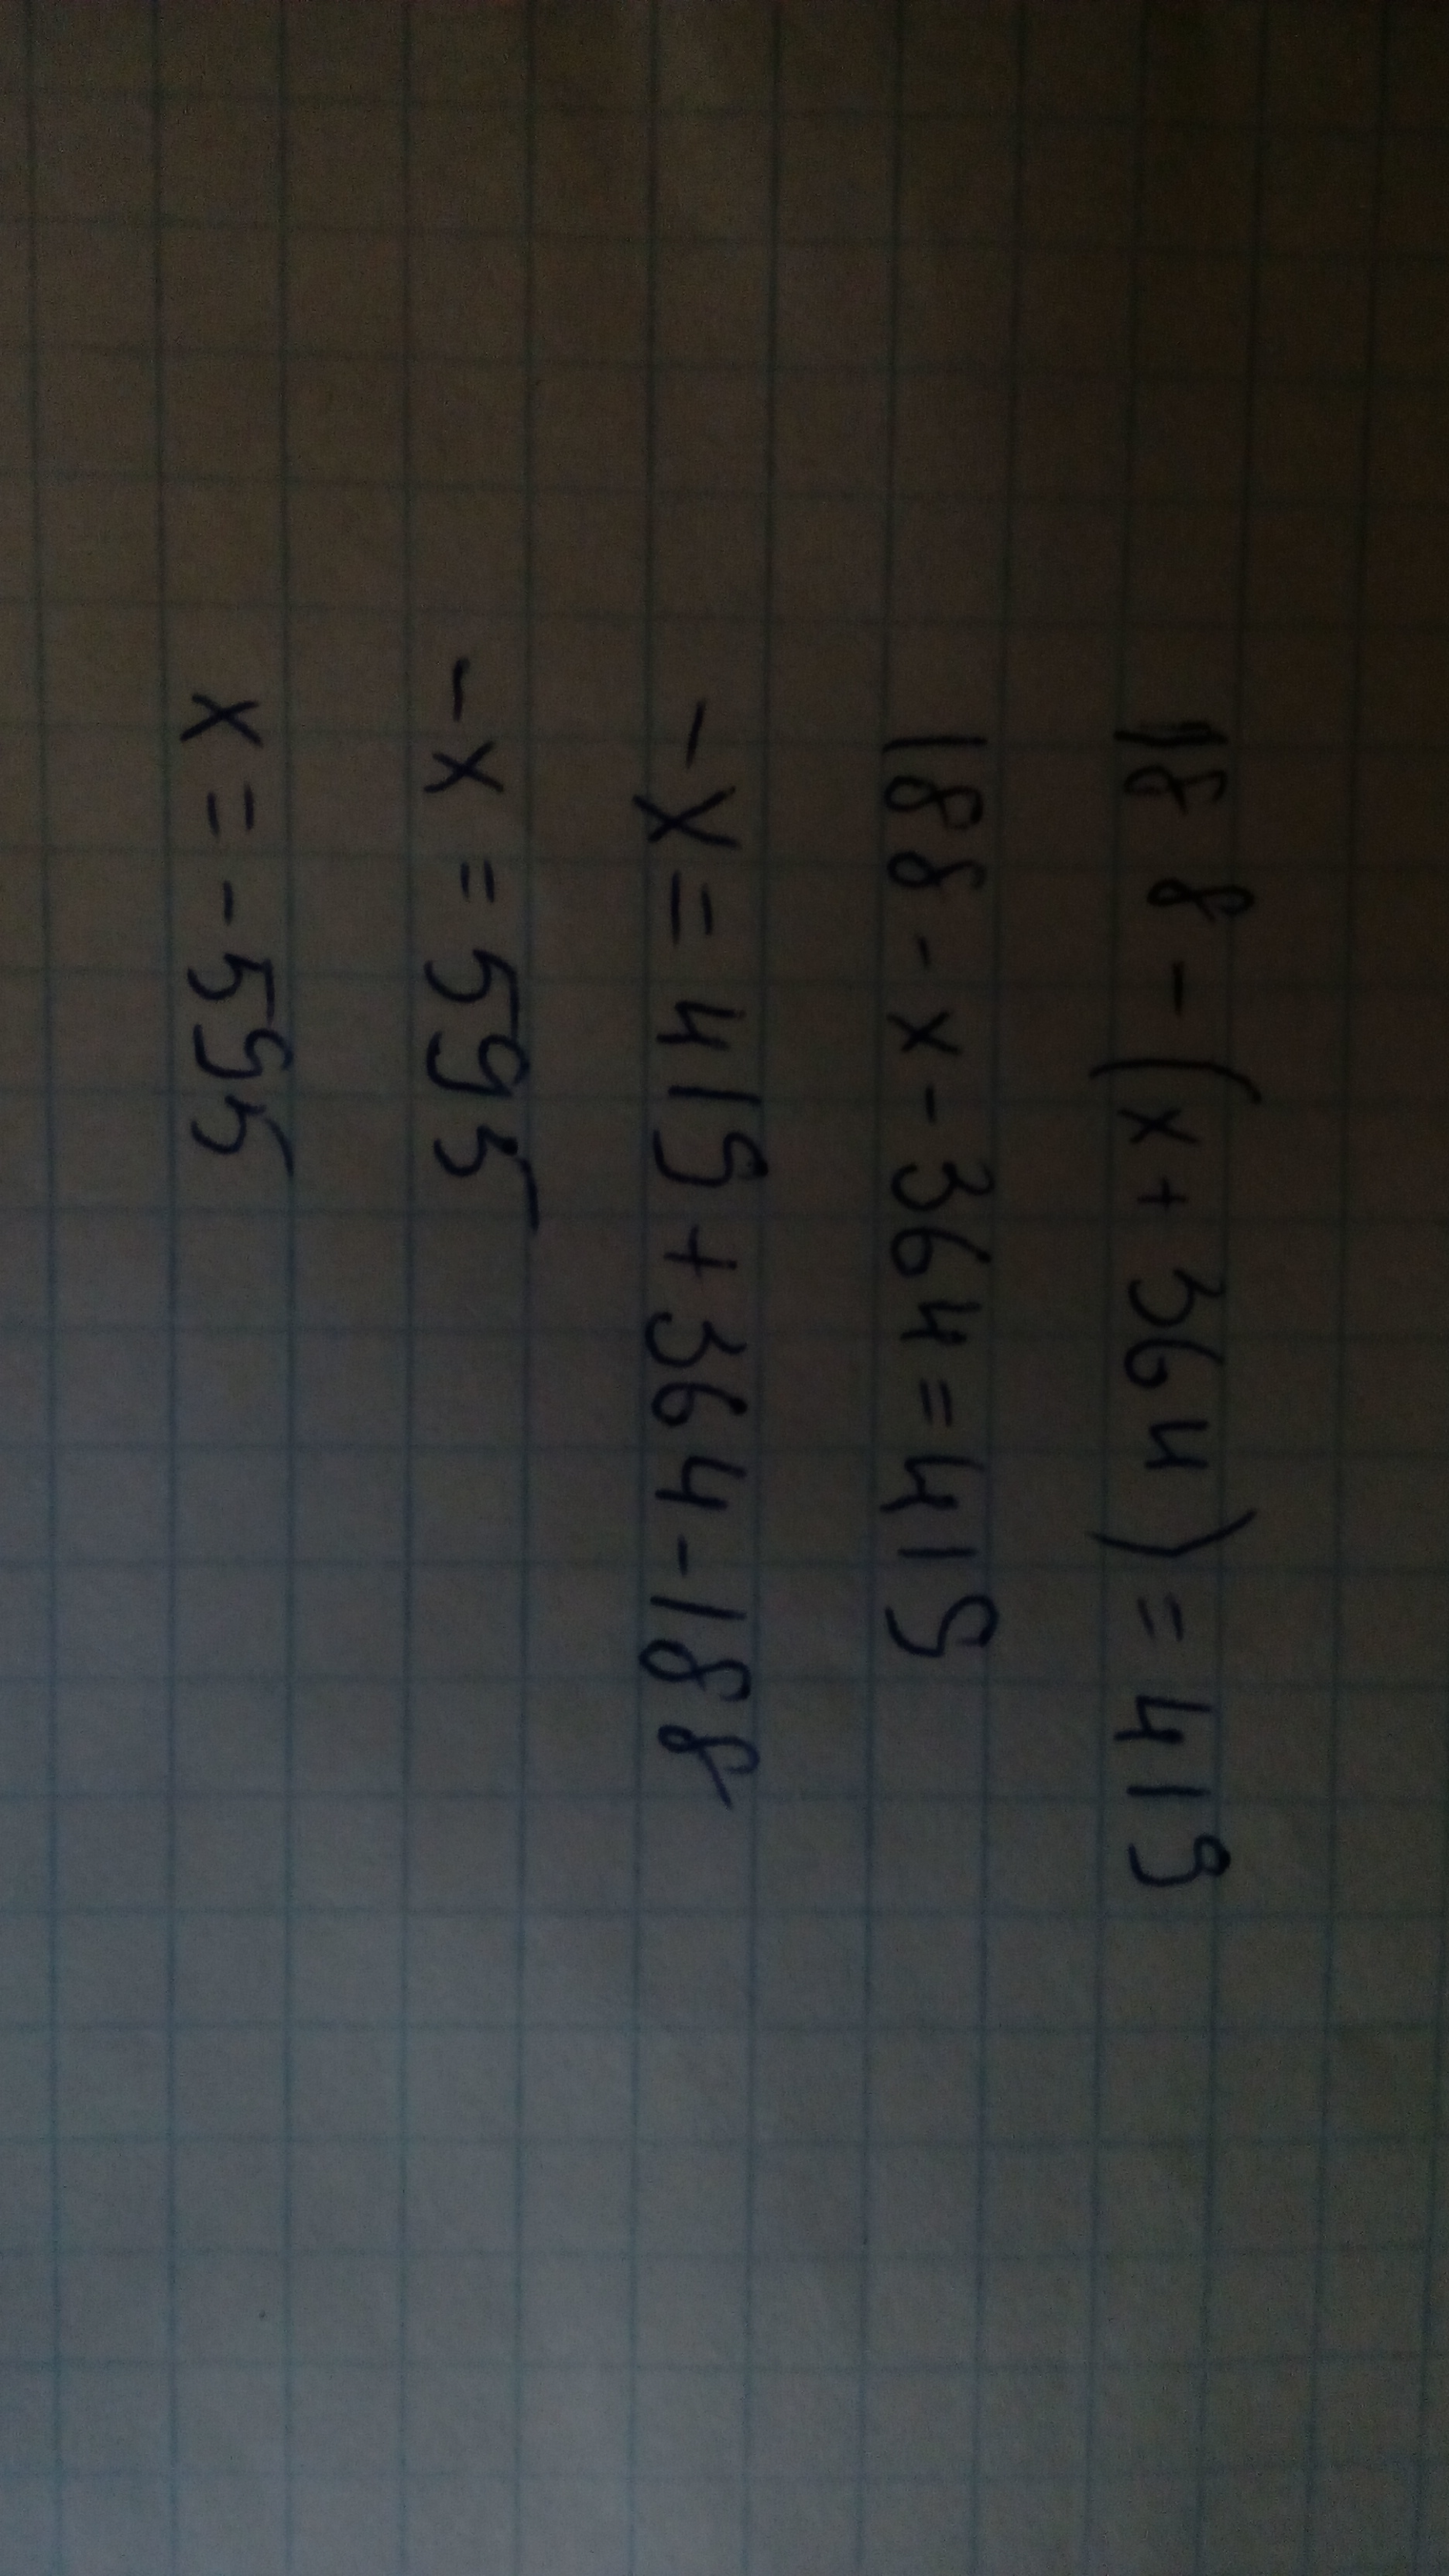 188-(x+364)=419
188-x-364=419
-x=419+364-188
-x=595
x=-595